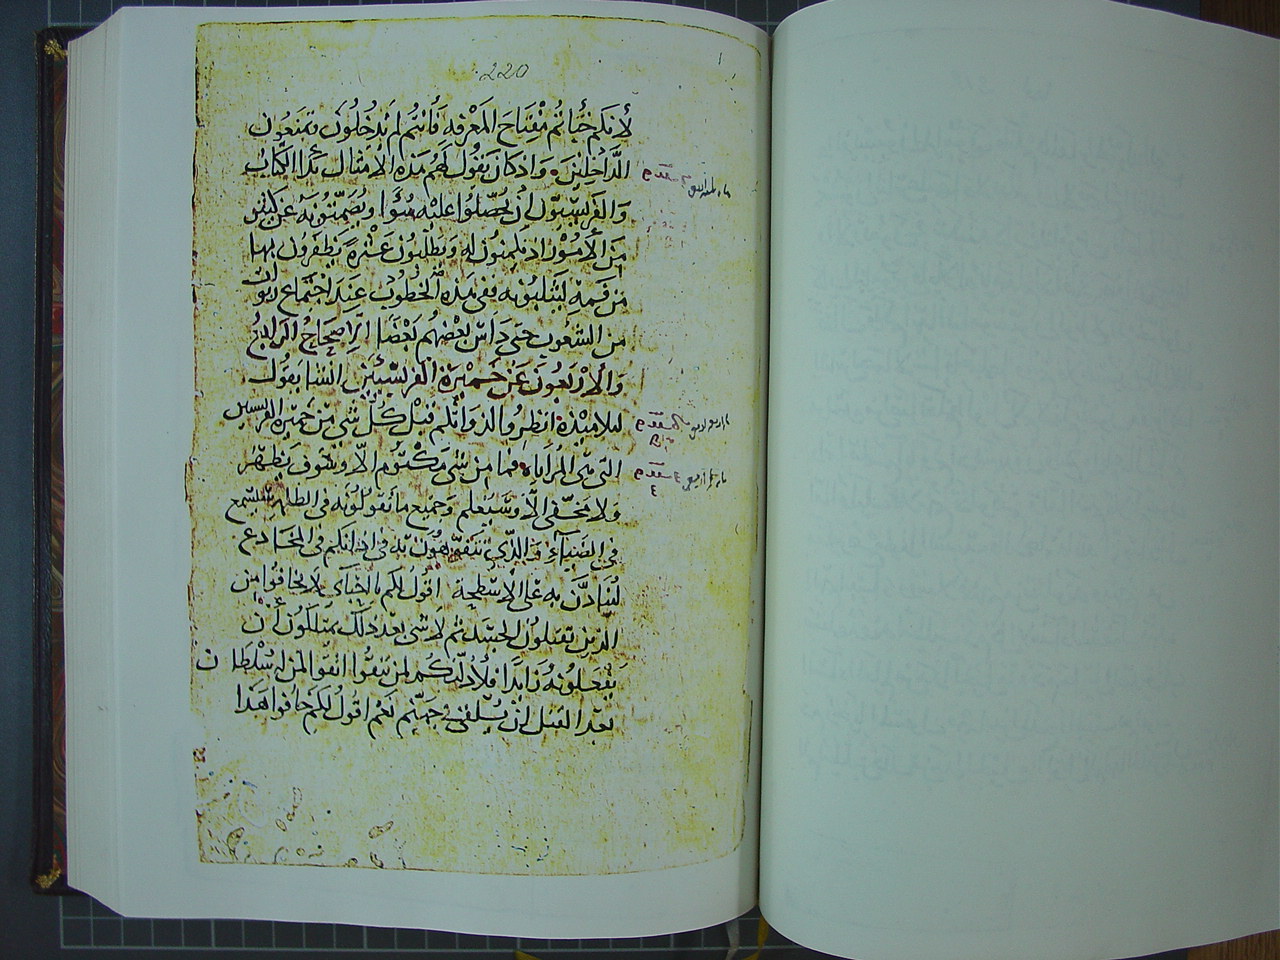 220
لأنكم خبأتم مفتاح المعرفه فأنتم لم تدخلون وتمنعون
الداخلين واذ كان يقول لهم هذه الامثال بدا الكتاب
والفريسيون ان يحصلوا عليه سُوا ويصمتونه عن كثير
من الأمور اذ يكمنون له ويطلبون عثرة يظفرون بها
من فمه ليثلبونه ففى هذه الخطوب عند اجتماع ربوات
من الشعوب حتى داس بعضهم بعضا الاصحاح الرابع
والاربعون عن خميرة الفريسيين انشا يقول
لتلاميذه انظروا لذواتكم قبل كل شى من خميرة الفريسيين
التى هى المراياه فما من شى مكتوم الا وسوف يظهر
ولا مخفى الا وسيعلم وجميع ما تقولونه فى الظلام سيسمع
فى الضياء والذي تتفوهون به فى اذانكم فى المخادع
لينادن به على الاسطحة اقول لكم يا احباي لا تخافوا من
الذين يقتلون الجسد ثم لا شى بعد ذلك يملكون أن
يفعلونه زايدا فلادلنكم لمن تتقوا اتقوا لمن له سلطان
بعد القتل ان يلقى فى جهنم نعم اقول لكم خافوا هذا